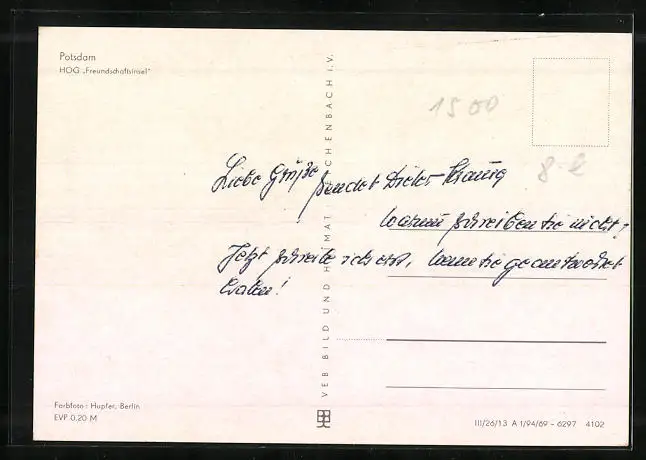 Potsdam
HOG „Freundschaftsinsel"
1500
8-
Liebe Grüße sendet Dieter
Warum schreiben Sie nicht?
Jetzt schreibe ich erst, wenn Sie geantwortet
haben!
VEB BILD UND HEIMAT REICHENBACH I.V.
Farbfoto: Hupfer, Berlin
EVP 0.20 M
III/26/13 A 1/94/69 – 6297 4102